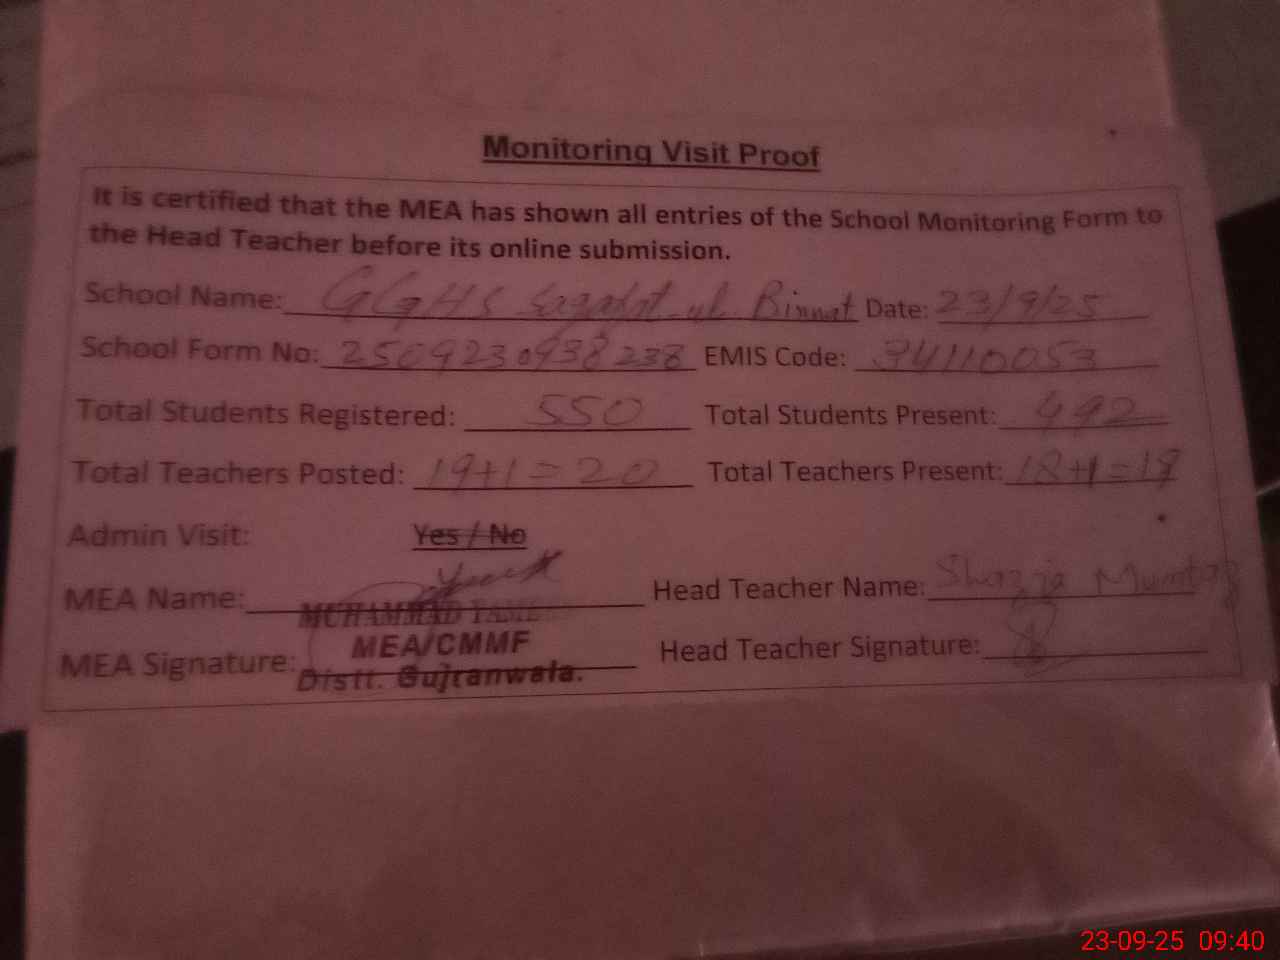 Monitoring Visit Proof
It is certified that the MEA has shown all entries of the School Monitoring Form to
the Head Teacher before its online submission.
School Name: GGHS ul Binnat Date: 23/9/25
School Form No: 2509230938238 EMIS Code: 34110053
Total Students Registered: 550 Total Students Present: 492
Total Teachers Posted: 19+1=20 Total Teachers Present: 18+1=19
Admin Visit: Yes / No
MEA Name: MUHAMMAD Head Teacher Name: Shazia Mumtaz
MEA/CMMF
MEA Signature: Head Teacher Signature:
Distt. Gujranwala.
23-09-25 09:40